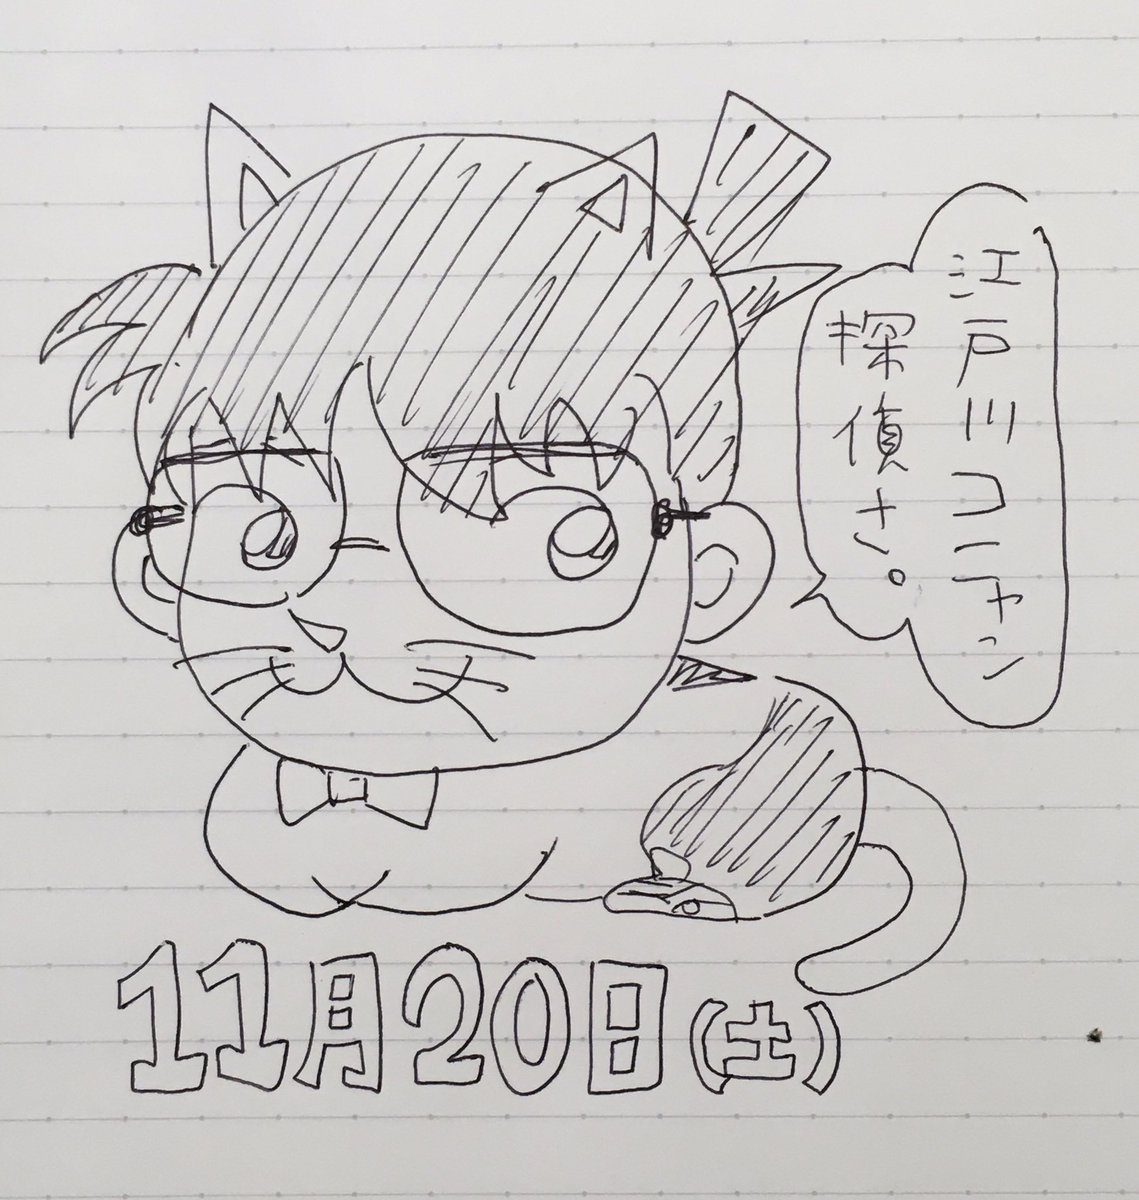 江戸川コニャン
探偵さ。
11月20日(土)